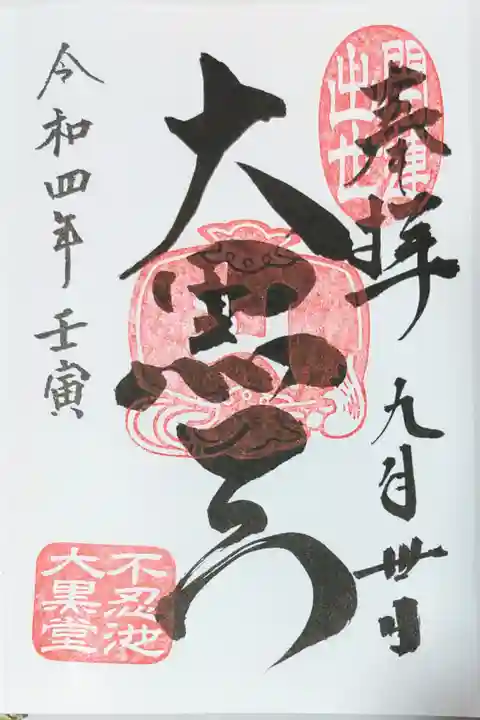 奉拝
九月卅日
開運
出世
大黒天
令和四年 壬寅
不忍池
大黒堂